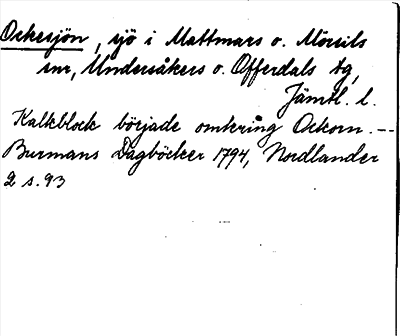 Ockesjön, sjö i Mattmars o. Mörsils
snr, Undersåkers o. Offerdals tg,
Jämtl. l.
Kalkblock började omkring Ockorn. --
Burmans Dagböcker 1794, Nordlander
2 s. 93